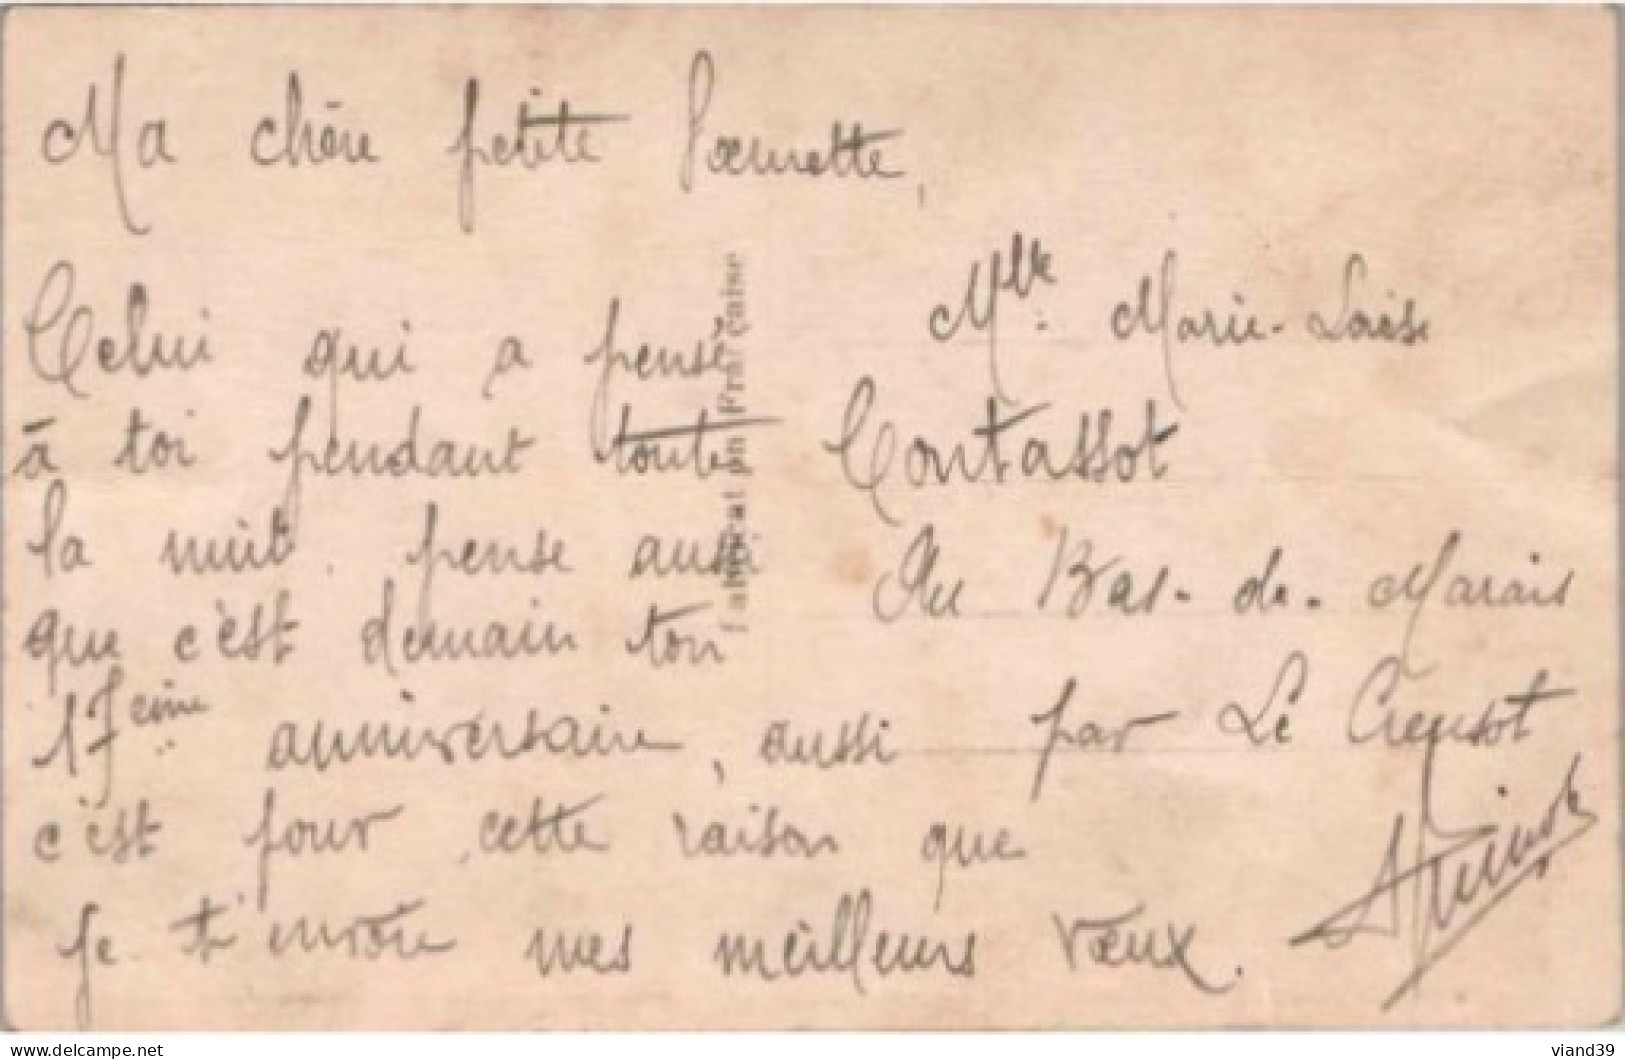 Ma chère petite Sœurette,
Celui qui a pensé
à toi pendant toute
la nuit. pense aussi
que c'est demain ton
17ème anniversaire, aussi
c'est pour cette raison que
je t'envoie mes meilleurs vœux.
Mlle. Marie-Louise
Contassot
Au Bas-de-Marais
par Le Creusot
Fabrication Française
viand39